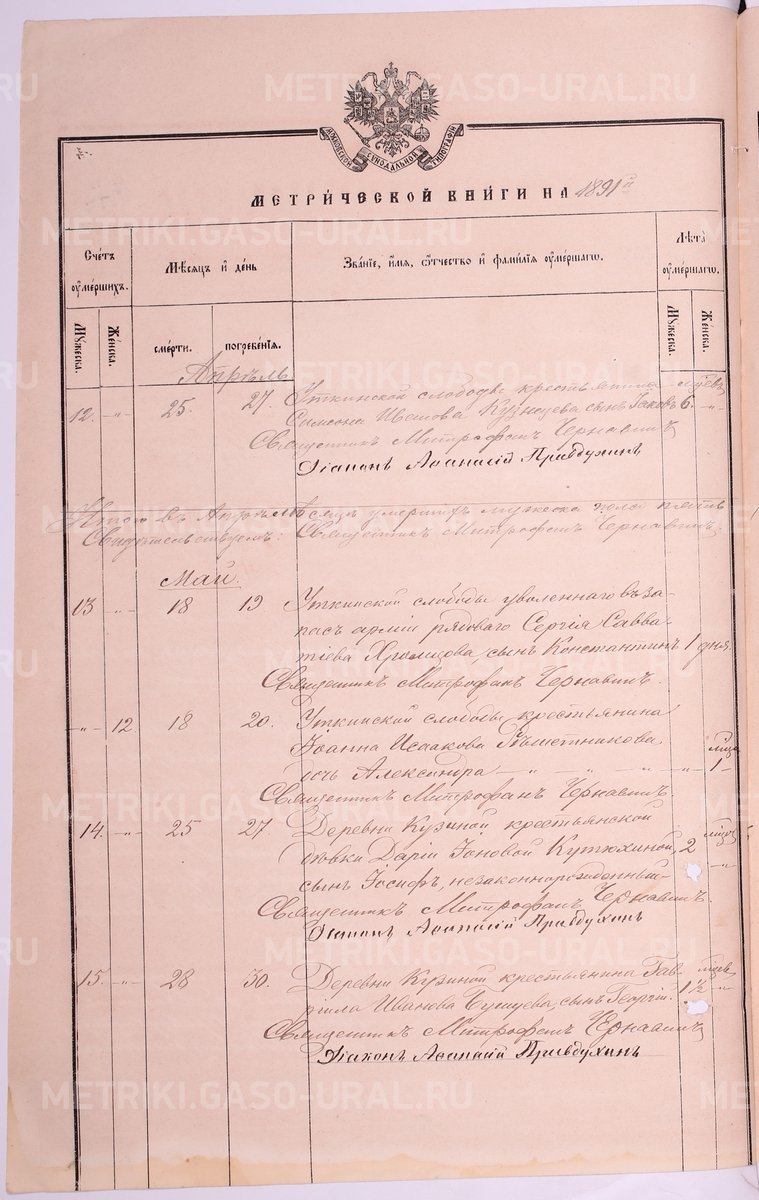 МОСКОВСКОЙ СѴНОДАЛЬНОЙ ТИПОГРАФІИ
МЕТРИ́ЧЕСКОЙ КНИ́ГИ НА 1891 й
Сче́тъ ᲂу҆ме́ршихъ.
Мѣ́сяцъ и де́нь
Зва́нїе, и́мя, ѻ҆́тчество и фами́лїя ᲂу҆ме́ршагѡ.
Лѣ́та ᲂу҆ме́ршагѡ.
Мꙋжеска.
Же́нска.
сме́рти.
погребе́нїя.
Мꙋжеска.
Же́нска.
Апрѣль
12. -„- 25. 27. Уткинской слободы крестьянина мѣсяцъ
Самсона Кузнецова сынъ Іаковъ 6. -„-
Священникъ Митрофанъ Чернавинъ
Діаконъ Аѳанасій Правдухинъ
Итого въ Апрѣлѣ мѣсяцѣ умершихъ мужеска пола пять
Свидѣтельствуемъ: Священникъ Митрофанъ Чернавинъ
Май.
13 „- 18 19 Уткинской слободы уволеннаго въ за-
пасъ арміи рядоваго Сергія Савва-
тіева Хромцова, сынъ Константинъ 1 дня.
Священникъ Митрофанъ Чернавинъ.
-„- 12 18 20. Уткинской слободы крестьянина
Іоанна Исаакова
дочь Александра -„- -„- -„- -„- 1-
Священникъ Митрофанъ Чернавинъ.
14. -„- 25 27. Деревни Кузиной крестьянской
дѣвки Даріи Іоновой Кутюхиной, 2
сынъ Іосифъ, незаконнорожденный -„-
Священникъ Митрофанъ Чернавинъ.
Діаконъ Аѳанасій Правдухинъ
15. -„- 28 30. Деревни Кузиной крестьянина Гав-
ріила Иванова сынъ Георгій. 1½ -„-
Священникъ Митрофанъ Чернавинъ
Діаконъ Аѳанасій Правдухинъ
METRIKI.GASO-URAL.RU